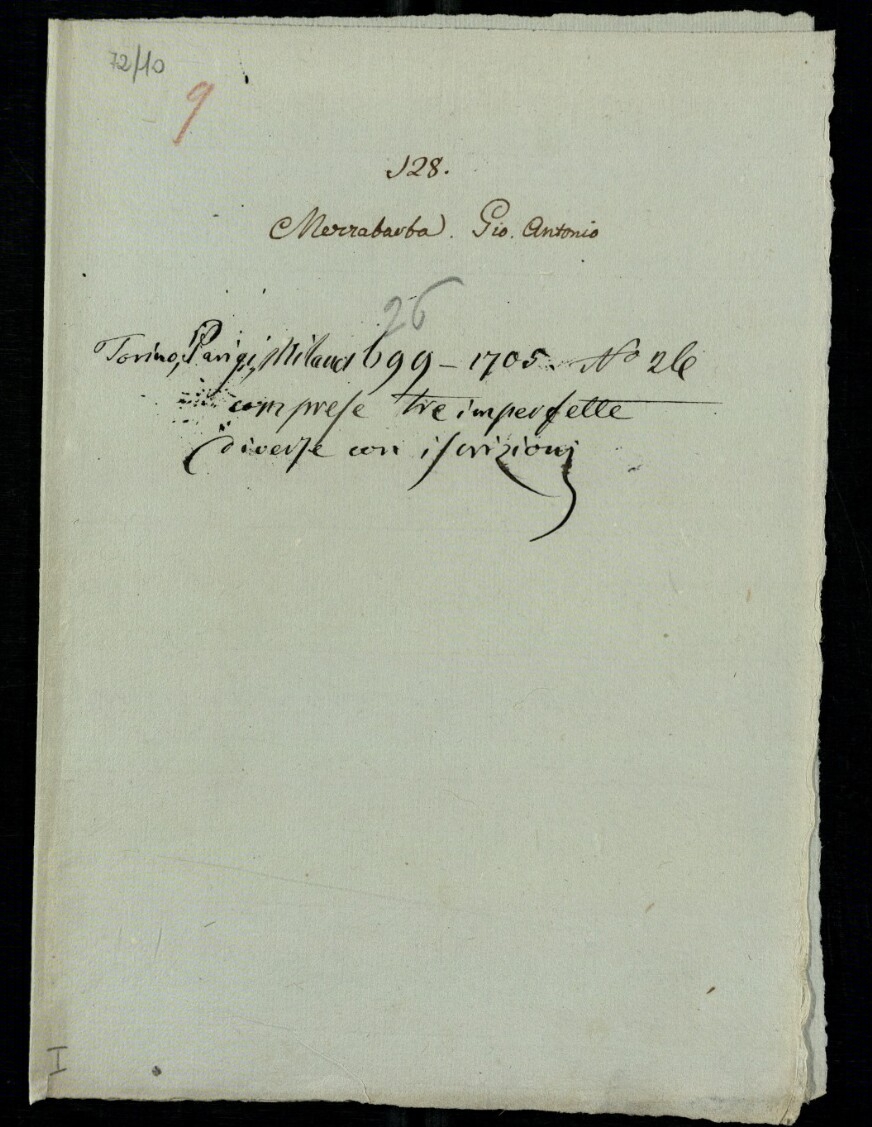 72/10
9
128.
Mezzabarba. Gio. Antonio
26
Torino, Parigi, Milano 1699 – 1705. No 26
comprese tre imperfette
diverse con iscrizioni
I